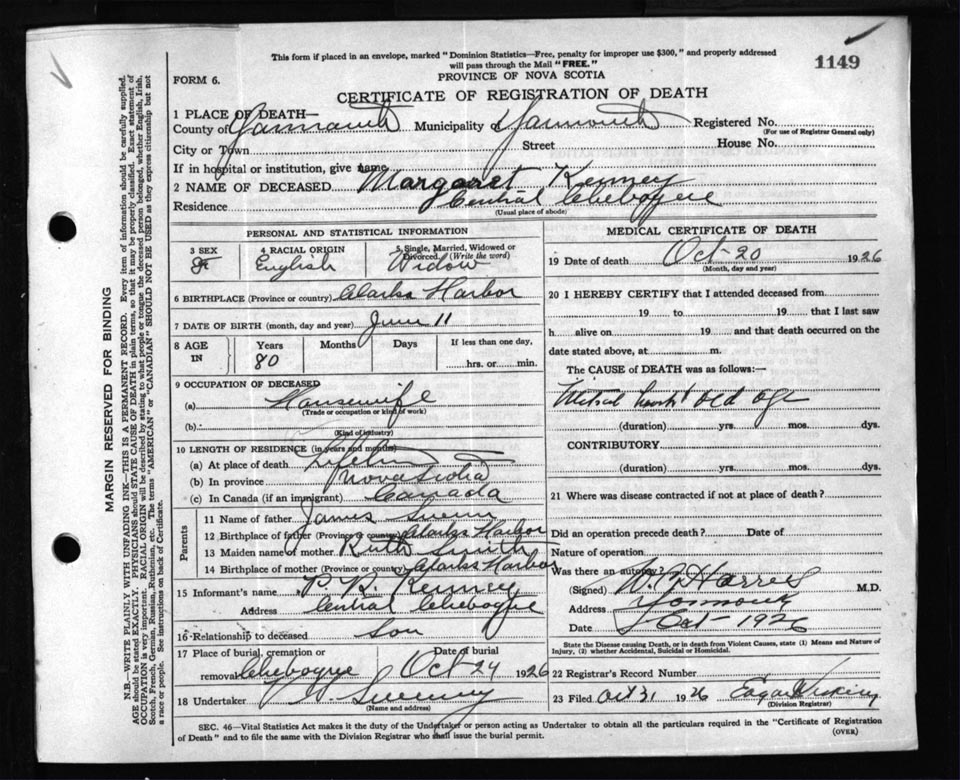 This form if placed in an envelope, marked "Dominion Statistics—Free, penalty for improper use $300," and properly addressed
will pass through the Mail "FREE."
1149
FORM 6.
PROVINCE OF NOVA SCOTIA
CERTIFICATE OF REGISTRATION OF DEATH
1 PLACE OF DEATH—
County of Yarmouth Municipality Yarmouth Registered No.
(For use of Registrar General only)
City or Town Street House No.
If in hospital or institution, give name
2 NAME OF DECEASED Margaret Kenney
Residence Central Chebogue
(Usual place of abode)
PERSONAL AND STATISTICAL INFORMATION
3 SEX F
4 RACIAL ORIGIN English
5 Single, Married, Widowed or Divorced. (Write the word) Widow
6 BIRTHPLACE (Province or country) Clarks Harbor
7 DATE OF BIRTH (month, day and year) June 11
8 AGE IN Years 80 Months Days If less than one day, hrs. or min.
9 OCCUPATION OF DECEASED
(a) Housewife
(Trade or occupation or kind of work)
(b)
(Kind of industry)
10 LENGTH OF RESIDENCE (in years and months)
(a) At place of death
(b) In province Nova Scotia
(c) In Canada (if an immigrant) Canada
Parents
11 Name of father James
12 Birthplace of father (Province or country) Clarks Harbor
13 Maiden name of mother Ruth Smith
14 Birthplace of mother (Province or country) Clarks Harbor
15 Informant's name P. R. Kenney
Address Central Chebogue
16 Relationship to deceased Son
17 Place of burial, cremation or removal Chebogue Date of burial Oct 24 1926
18 Undertaker Sweeny
(Name and address)
MEDICAL CERTIFICATE OF DEATH
19 Date of death Oct 20 1926
(Month, day and year)
20 I HEREBY CERTIFY that I attended deceased from
19 to 19 that I last saw
h alive on 19 and that death occurred on the
date stated above, at m.
The CAUSE of DEATH was as follows:—
Mitral heart old age
(duration) yrs. mos. dys.
CONTRIBUTORY
(duration) yrs. mos. dys.
21 Where was disease contracted if not at place of death?
Did an operation precede death? Date of
Nature of operation
Was there an autopsy?
(Signed) M.D.
Address Yarmouth
Date Oct - 1926
State the Disease causing Death, or in Death from Violent Causes, state (1) Means and Nature of
Injury, (2) whether Accidental, Suicidal or Homicidal.
22 Registrar's Record Number
23 Filed Oct 31 1926 Edgar
(Division Registrar)
SEC. 46—Vital Statistics Act makes it the duty of the Undertaker or person acting as Undertaker to obtain all the particulars required in the "Certificate of Registration
of Death" and to file the same with the Division Registrar who shall issue the burial permit.
(OVER)
MARGIN RESERVED FOR BINDING
N.B.—WRITE PLAINLY WITH UNFADING INK—THIS IS A PERMANENT RECORD. Every item of information should be carefully supplied.
AGE should be stated EXACTLY. PHYSICIANS should STATE CAUSE OF DEATH in plain terms, so that it may be properly classified. Exact statement of
OCCUPATION is very important. RACIAL ORIGIN will be described by stating to what people or tongue the deceased person belonged, whether English, Irish,
Scotch, French, German, Russian, Ruthenian, etc. The terms "AMERICAN" or "CANADIAN" SHOULD NOT BE USED as they express citizenship but not
a race or people. See instructions on back of Certificate.